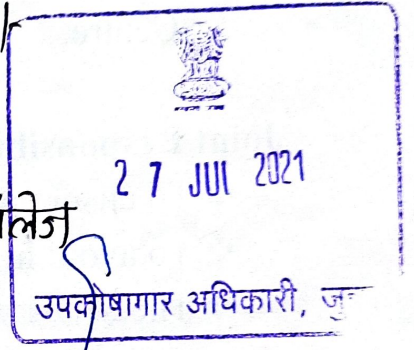 2 7 JUL 2021
लेज
उपकोषागार अधिकारी,